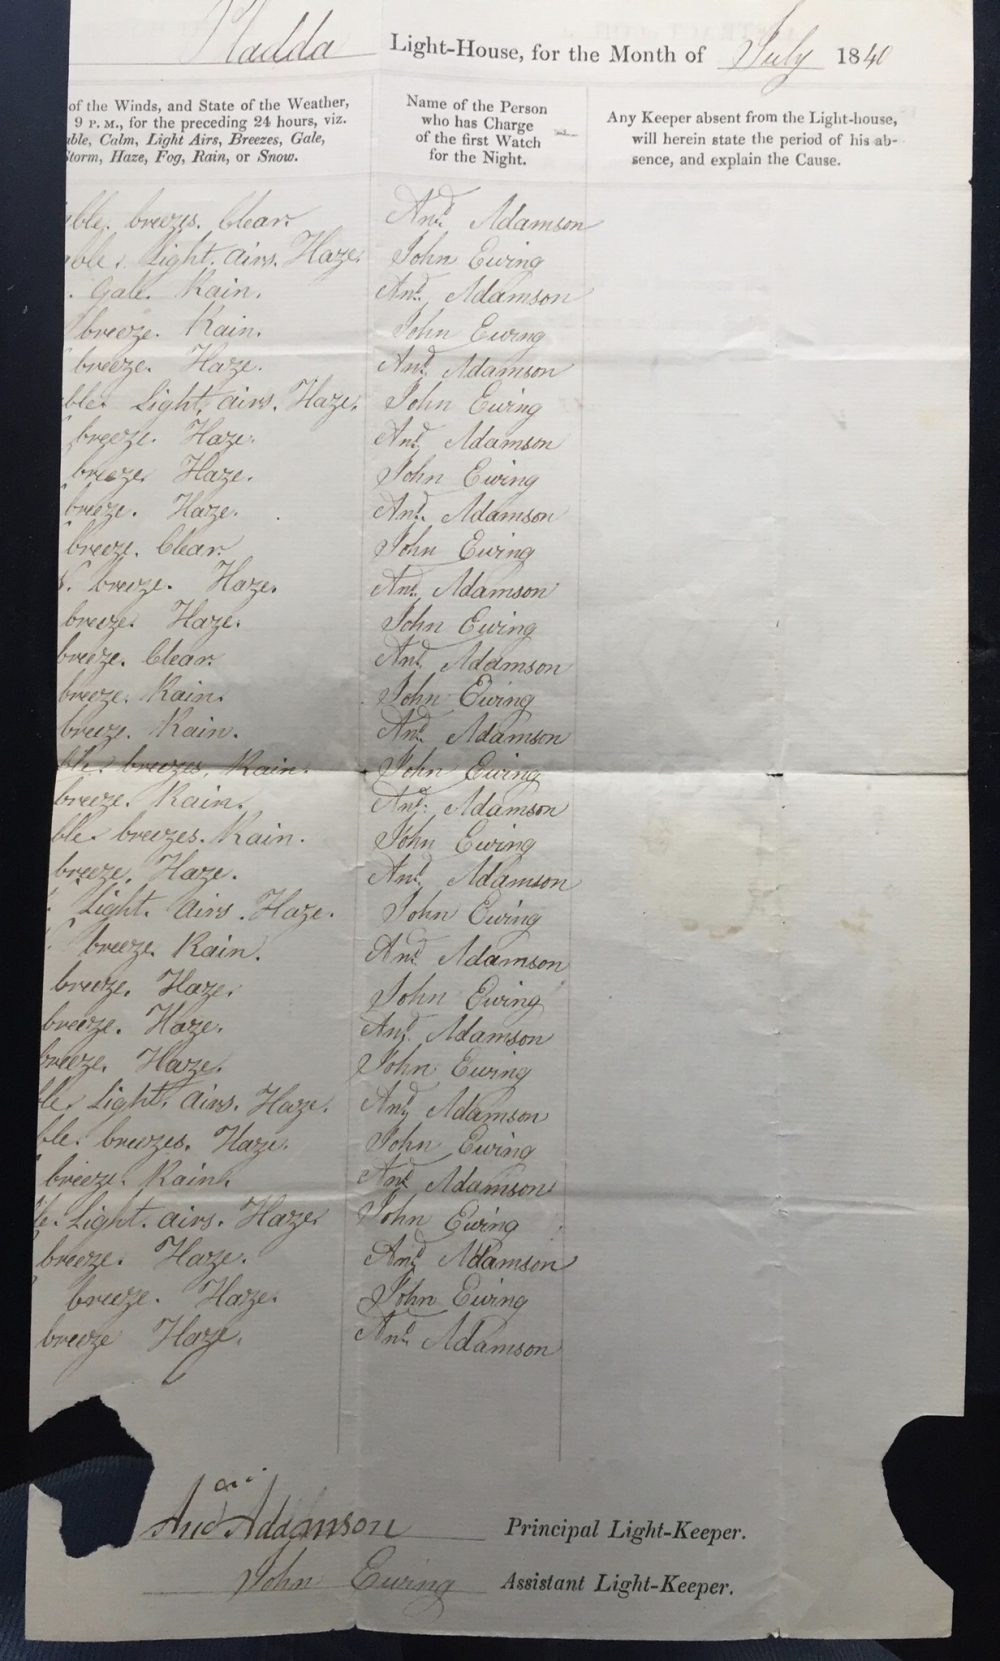 Pladda Light-House, for the Month of July 1840
of the Winds, and State of the Weather,
9 P. M., for the preceding 24 hours, viz.
able, Calm, Light Airs, Breezes, Gale,
Storm, Haze, Fog, Rain, or Snow.
Name of the Person
who has Charge
of the first Watch
for the Night.
Any Keeper absent from the Light-house,
will herein state the period of his ab-
sence, and explain the Cause.
able. breezes. Clear. And Adamson
able. Light. airs. Haze. John Ewing
. Gale. Rain. And Adamson
breeze. Rain. John Ewing
breeze. Haze. And Adamson
ble. Light. airs. Haze. John Ewing
breeze. Haze. And Adamson
breeze. Haze. John Ewing
breeze. Haze. And Adamson
breeze. Clear. John Ewing
breeze. Haze. And Adamson
breeze. Haze. John Ewing
breeze. Clear. And Adamson
breeze. Rain. John Ewing
breeze. Rain. And Adamson
ble. breezes. Rain. John Ewing
breeze. Rain. And Adamson
ble. breezes. Rain. John Ewing
breeze. Haze. And Adamson
Light. Airs. Haze. John Ewing
breeze. Rain. And Adamson
breeze. Haze. John Ewing
breeze. Haze. And Adamson
breeze. Haze. John Ewing
ble. Light. airs. Haze. And Adamson
ble. breezes. Haze. John Ewing
breeze. Rain. And Adamson
le. Light. airs. Haze. John Ewing
breeze. Haze. And Adamson
breeze. Haze. John Ewing
breeze Haze. And Adamson
And Addamson Principal Light-Keeper.
John Ewing Assistant Light-Keeper.